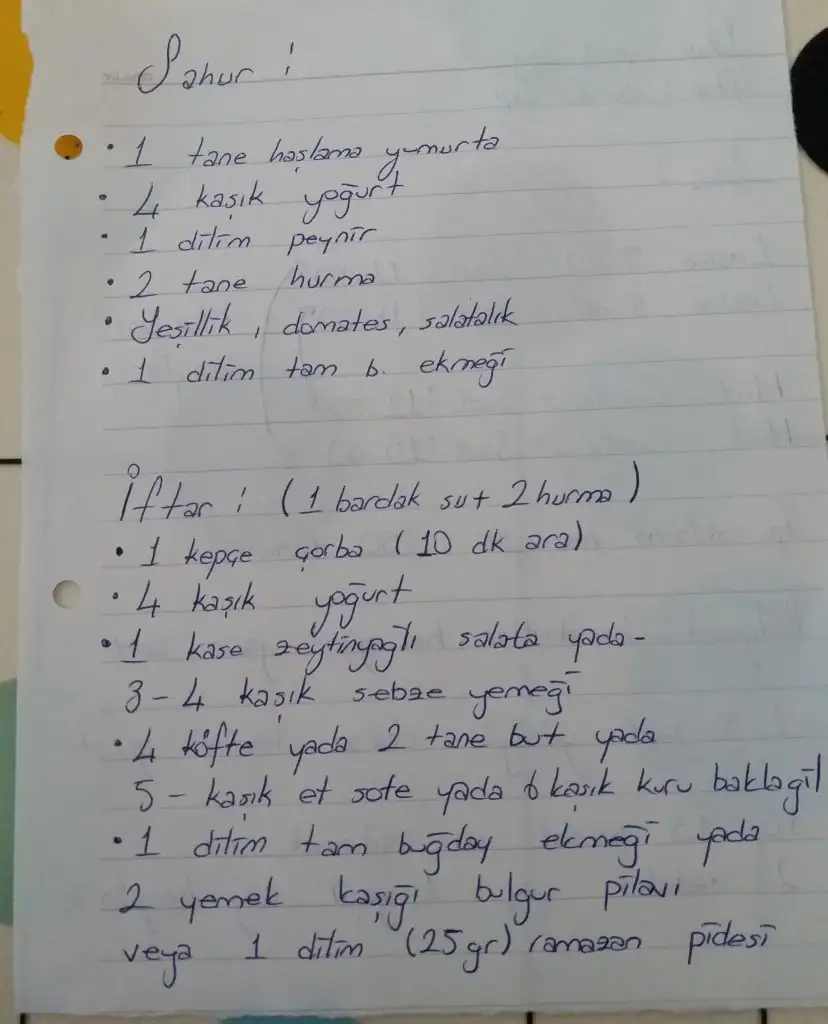 Sahur :
• 1 tane haşlama yumurta
• 4 kaşık yoğurt
• 1 dilim peynir
• 2 tane hurma
• Yeşillik, domates, salatalık
• 1 dilim tam b. ekmeği
İftar : (1 bardak su + 2 hurma)
• 1 kepçe çorba (10 dk ara)
• 4 kaşık yoğurt
• 1 kase zeytinyağlı salata yada -
3 - 4 kaşık sebze yemeği
• 4 köfte yada 2 tane but yada
5 - kaşık et sote yada 6 kaşık kuru baklagil
• 1 dilim tam buğday ekmeği yada
2 yemek kaşığı bulgur pilavı
veya 1 dilim (25 gr) ramazan pidesi